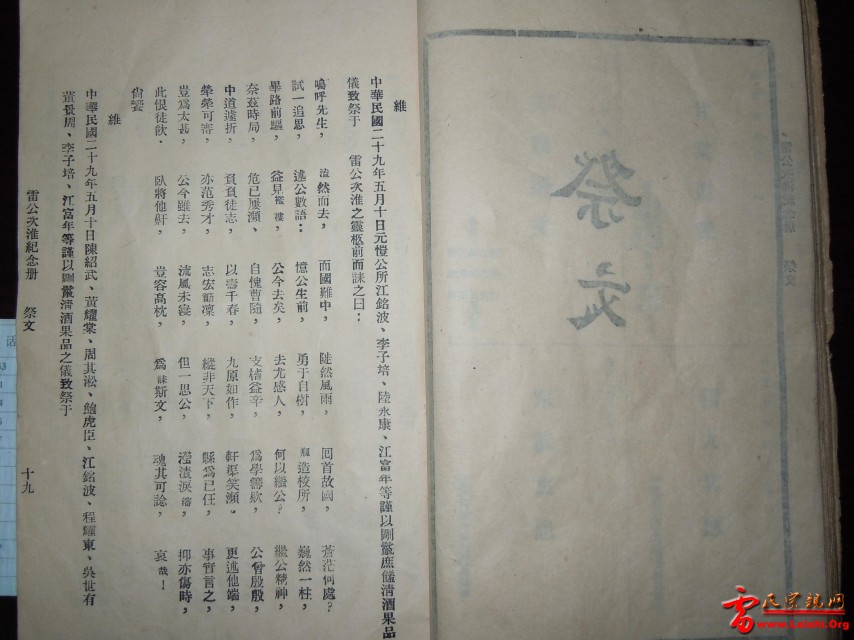 祭文
維
中華民國二十九年五月十日元愷公所江銘波、李子培、陸永康、江富年等謹以剛鬣庶饈清酒果品
儀致祭于 雷公次淮之靈柩前而誄之曰：
嗚呼先生， 溘然而去， 而國難中， 陡然風雨， 回首故國， 蒼茫何處？
試一追思， 述公數語： 憶公生前， 勇于自樹， 造校所， 巍然一柱，
畢路前驅， 益見襤褸， 公今去矣， 去尤感人， 何以繼公？ 繼公精神，
奈茲時局， 危已屢瀕、 自愧曹隨， 支榰益辛， 為學籌欵， 公曾殷殷，
中道遽折， 負負徒志， 以壽千春， 九原如作， 軒渠笑瀕。 更述他端，
犖犖可譱， 亦范秀才， 志宏範凜， 縱非天下， 縣為己任， 事實言之，
豈為太甚， 公今雖去， 流風未寖， 但一思公， 濕漬淚瀋， 抑亦傷時，
此恨徒飲． 臥將他鼾， 豈容高枕， 為誄斯文， 魂其可諗， 哀哉！
尙饗
維
中華民國二十九年五月十日陳紹武、黃耀棠、周其淞、鮑虎臣、江銘波、程耀東、吳世有
董景周、李子培、江富年等謹以剛鬣清酒果品之儀致祭于
雷公次淮紀念册 祭文 十九
雷氏宗親网
www.Leishi.Org